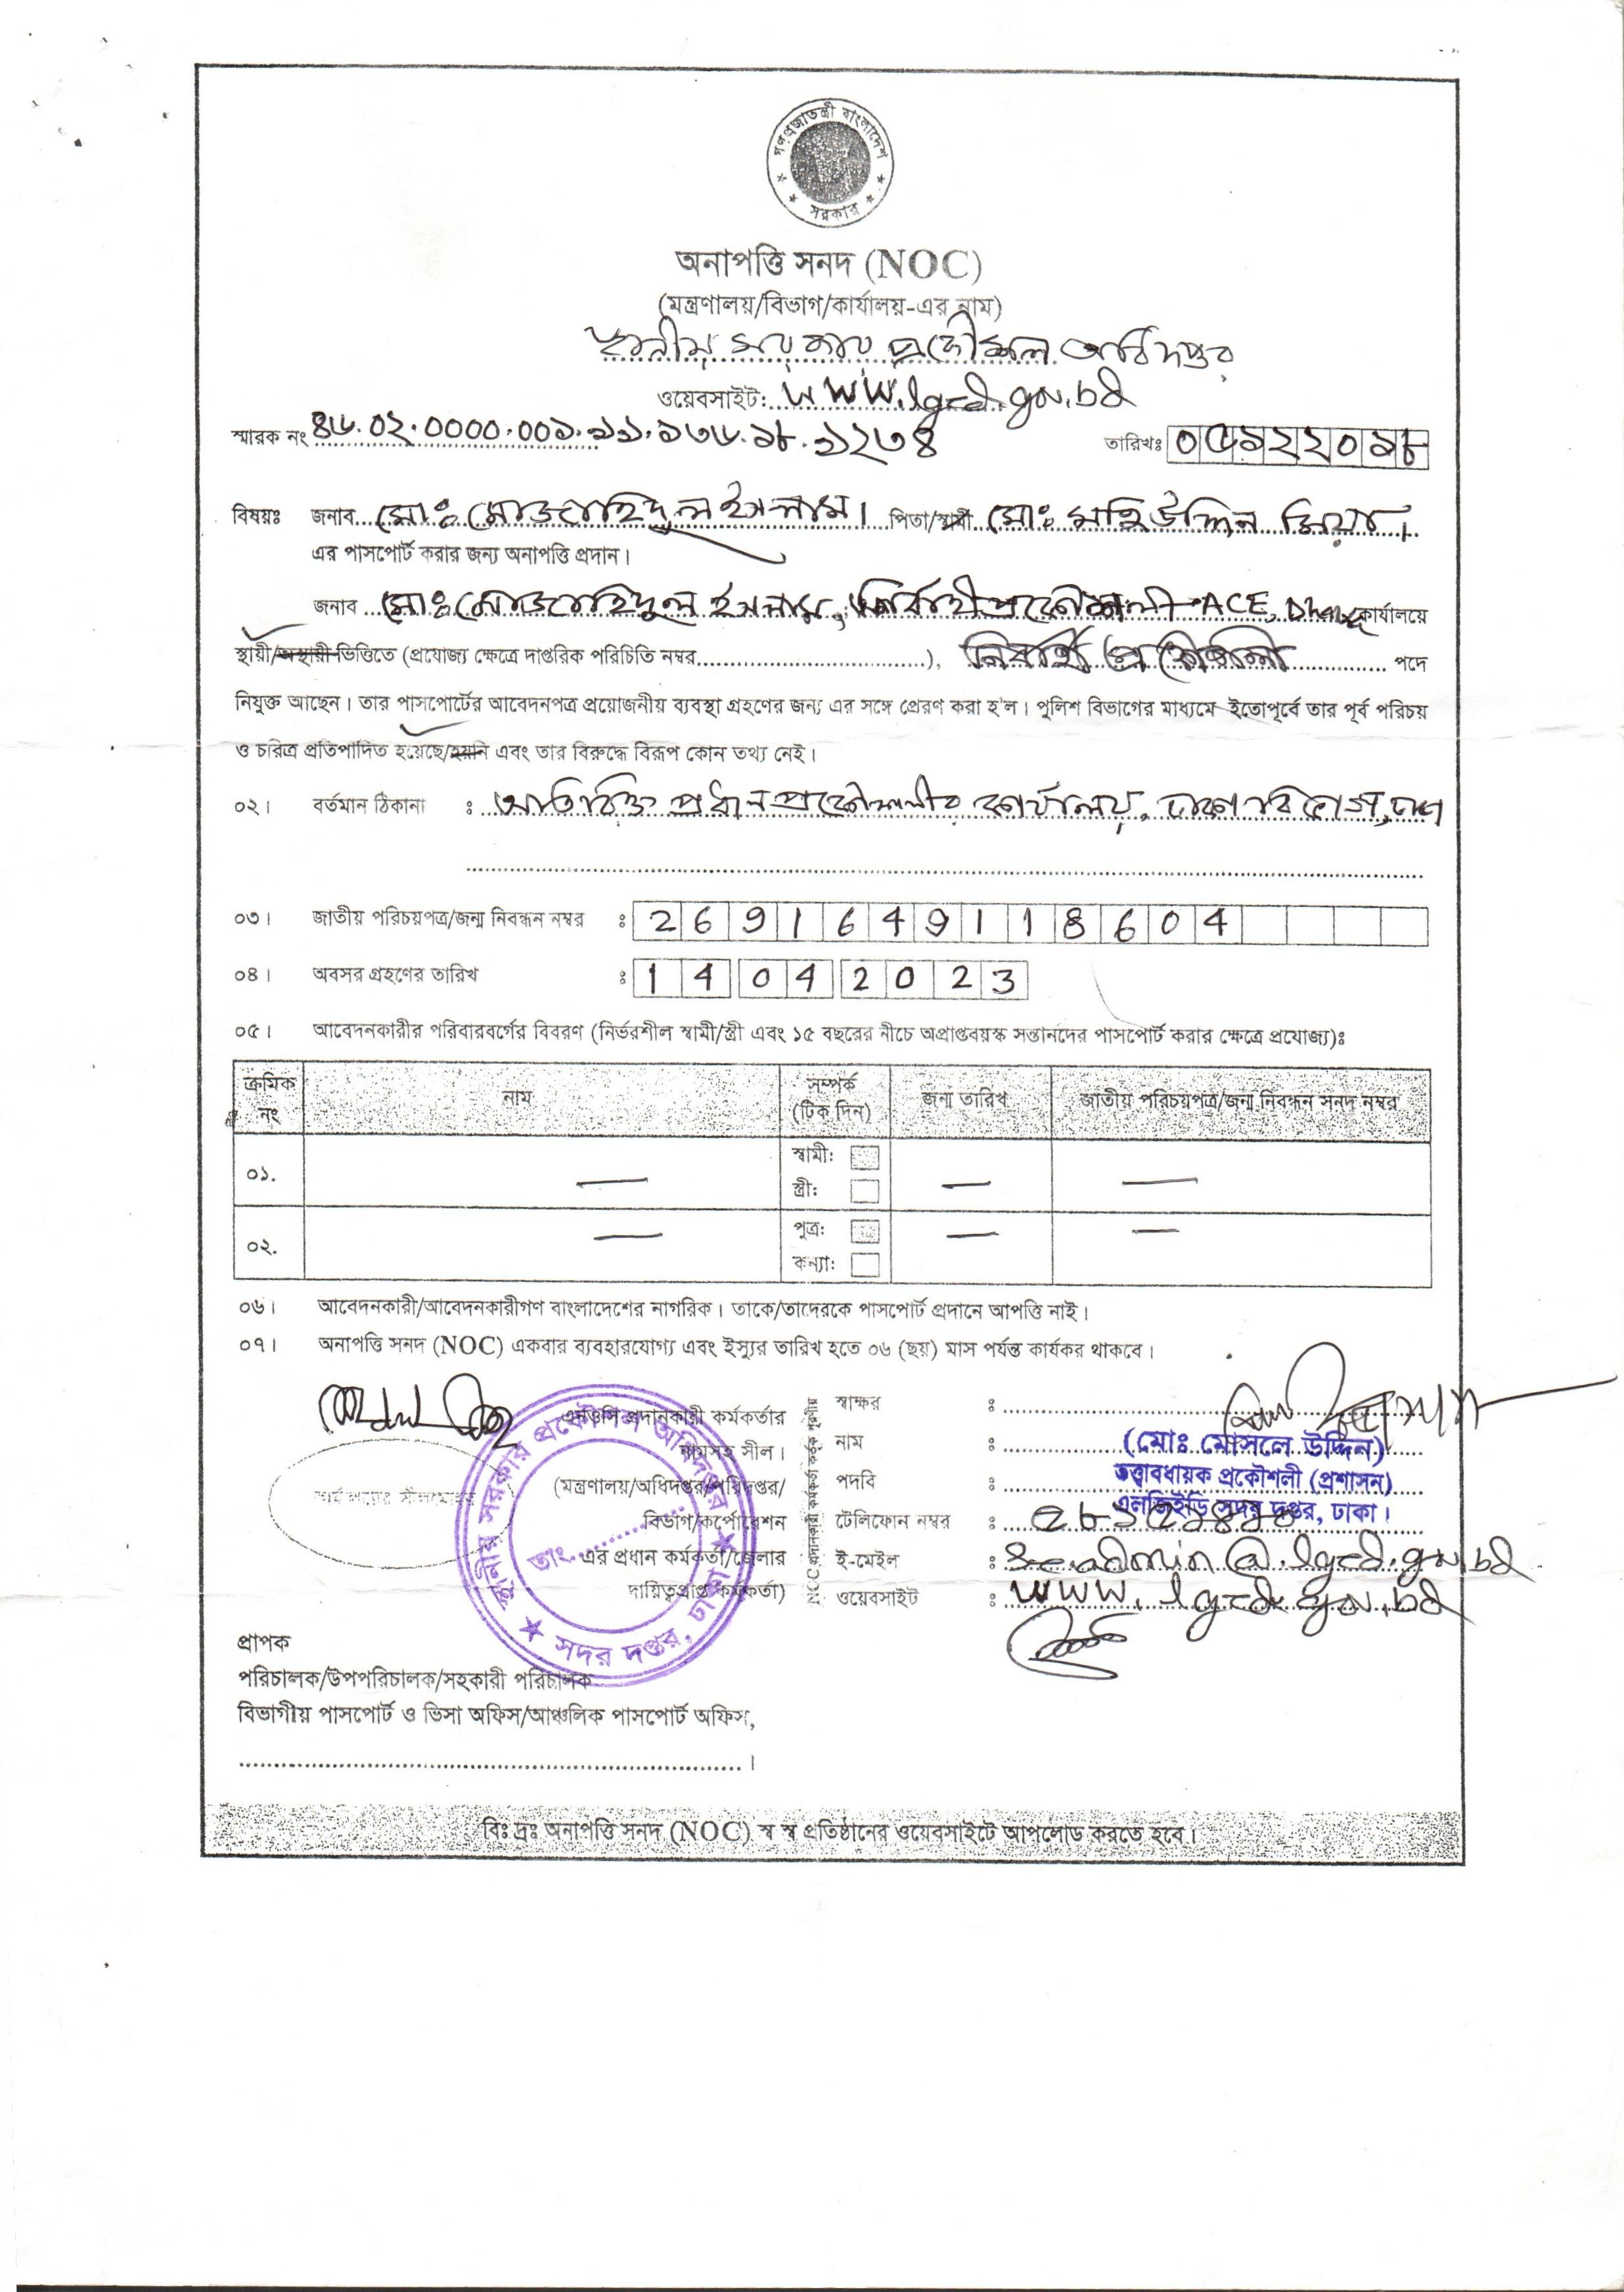 গণপ্রজাতন্ত্রী বাংলাদেশ
সরকার
অনাপত্তি সনদ (NOC)
(মন্ত্রণালয়/বিভাগ/কার্যালয়-এর নাম)
স্থানীয় সরকার প্রকৌশল অধিদপ্তর
ওয়েবসাইট: www.lged.gov.bd
স্মারক নং ৪৬.০২.০০০০.০০১.১১.১৩৬.১৮.১২৩৪ তারিখঃ ০৫১২২০১৮
বিষয়ঃ জনাব মোঃ মোজাহিদুল ইসলাম। পিতা/স্বামী মোঃ মহিউদ্দিন মিয়া।
এর পাসপোর্ট করার জন্য অনাপত্তি প্রদান।
জনাব মোঃ মোজাহিদুল ইসলাম, নির্বাহী প্রকৌশলী ACE, Dhaka কার্যালয়ে
স্থায়ী/অস্থায়ী ভিত্তিতে (প্রযোজ্য ক্ষেত্রে দাপ্তরিক পরিচিতি নম্বর..............................), নির্বাহী প্রকৌশলী পদে
নিযুক্ত আছেন। তার পাসপোর্টের আবেদনপত্র প্রয়োজনীয় ব্যবস্থা গ্রহণের জন্য এর সঙ্গে প্রেরণ করা হ'ল। পুলিশ বিভাগের মাধ্যমে ইতোপূর্বে তার পূর্ব পরিচয়
ও চরিত্র প্রতিপাদিত হয়েছে/হয়নি এবং তার বিরুদ্ধে বিরূপ কোন তথ্য নেই।
০২। বর্তমান ঠিকানা : অতিরিক্ত প্রধান প্রকৌশলীর কার্যালয়, ঢাকা বিভাগ, ঢাকা
০৩। জাতীয় পরিচয়পত্র/জন্ম নিবন্ধন নম্বর : 2691649118604
০৪। অবসর গ্রহণের তারিখ : 14 04 2023
০৫। আবেদনকারীর পরিবারবর্গের বিবরণ (নির্ভরশীল স্বামী/স্ত্রী এবং ১৫ বছরের নীচে অপ্রাপ্তবয়স্ক সন্তানদের পাসপোর্ট করার ক্ষেত্রে প্রযোজ্য)ঃ
ক্রমিক নং নাম সম্পর্ক (টিক দিন) জন্ম তারিখ জাতীয় পরিচয়পত্র/জন্ম নিবন্ধন সনদ নম্বর
০১. — স্বামী: — —
স্ত্রী:
০২. — পুত্র: — —
কন্যা:
০৬। আবেদনকারী/আবেদনকারীগণ বাংলাদেশের নাগরিক। তাকে/তাদেরকে পাসপোর্ট প্রদানে আপত্তি নাই।
০৭। অনাপত্তি সনদ (NOC) একবার ব্যবহারযোগ্য এবং ইস্যুর তারিখ হতে ০৬ (ছয়) মাস পর্যন্ত কার্যকর থাকবে।
এনওসি প্রদানকারী কর্মকর্তার
নামসহ সীল।
(মন্ত্রণালয়/অধিদপ্তর/পরিদপ্তর/
বিভাগ/কর্পোরেশন
এর প্রধান কর্মকর্তা/জেলার
দায়িত্বপ্রাপ্ত কর্মকর্তা)
কার্যালয়ের সীলমোহর
স্থানীয় সরকার প্রকৌশল অধিদপ্তর
তাং
সদর দপ্তর, ঢাকা
NOC প্রদানকারী কর্মকর্তা কর্তৃক পূরণীয়
স্বাক্ষর :
নাম : (মোঃ মোসলে উদ্দিন)
পদবি : তত্ত্বাবধায়ক প্রকৌশলী (প্রশাসন)
এলজিইডি সদর দপ্তর, ঢাকা।
টেলিফোন নম্বর :
ই-মেইল : se.admin@lged.gov.bd
ওয়েবসাইট : www.lged.gov.bd
প্রাপক
পরিচালক/উপপরিচালক/সহকারী পরিচালক
বিভাগীয় পাসপোর্ট ও ভিসা অফিস/আঞ্চলিক পাসপোর্ট অফিস,
বিঃ দ্রঃ অনাপত্তি সনদ (NOC) স্ব স্ব প্রতিষ্ঠানের ওয়েবসাইটে আপলোড করতে হবে।